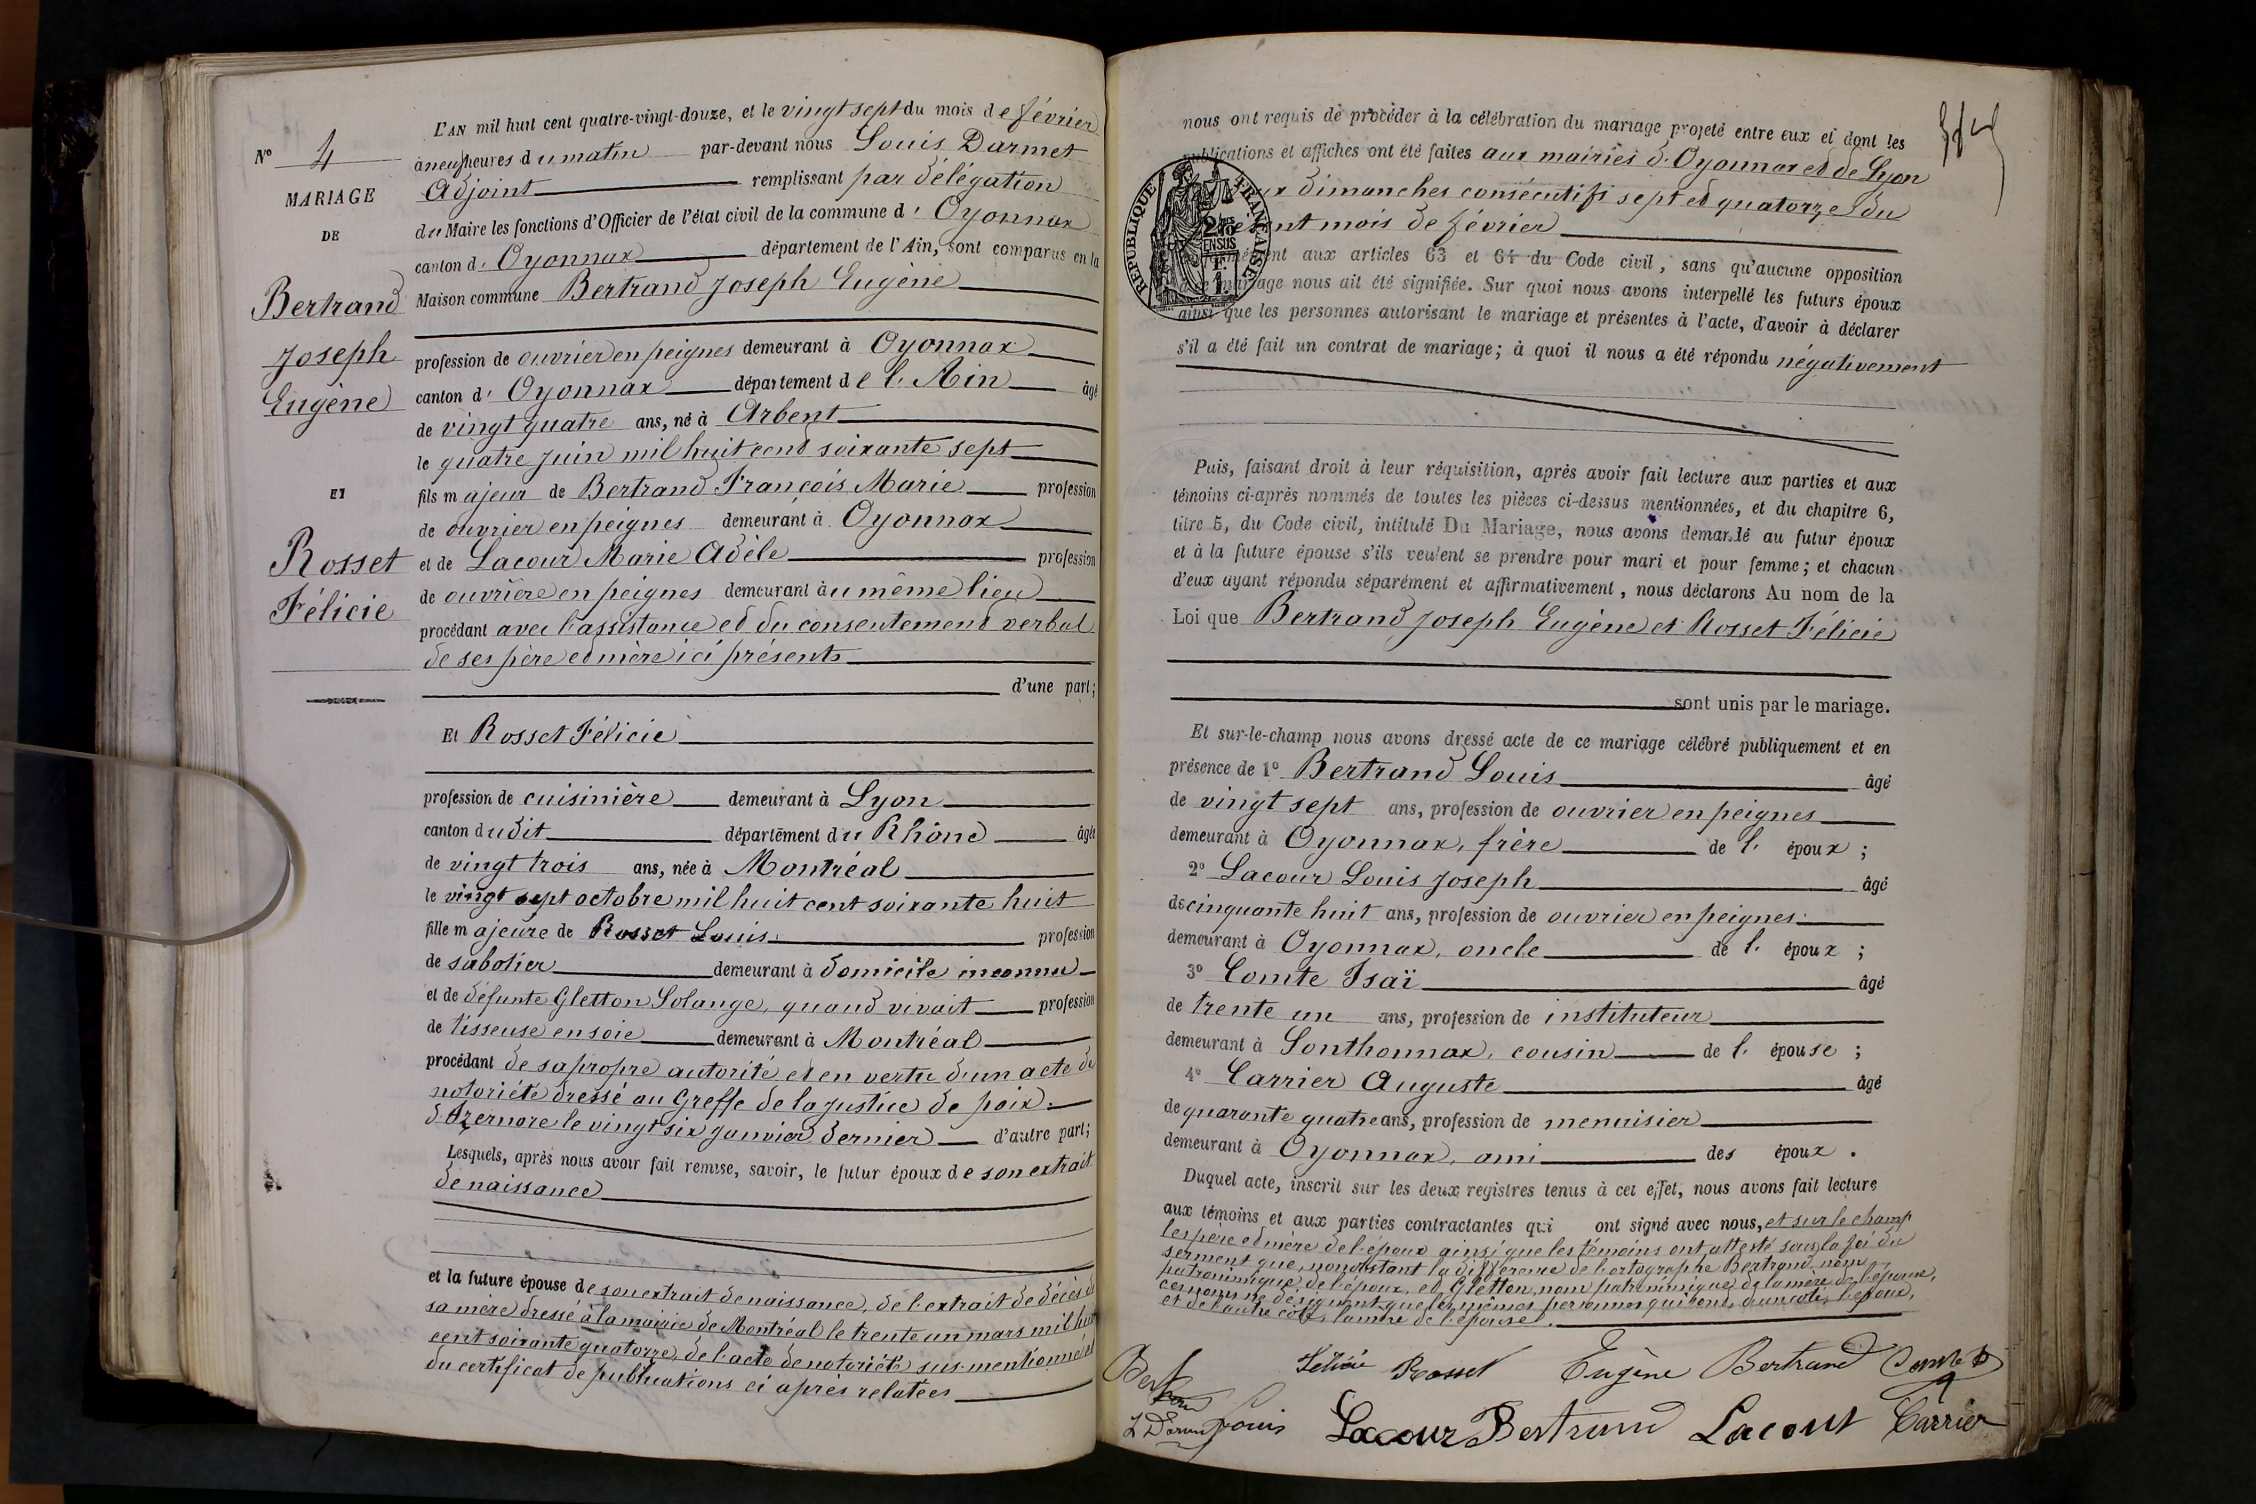 L'AN mil huit cent quatre-vingt-douze, et le vingt sept du mois de février
à neuf heures du matin par-devant nous Louis Darmet
Adjoint remplissant par délégation
du Maire les fonctions d'Officier de l'état civil de la commune d' Oyonnax
canton d' Oyonnax département de l'Ain, sont comparus en la
Maison commune Bertrand Joseph Eugène
profession de ouvrier en peignes demeurant à Oyonnax
canton d' Oyonnax département de l'Ain âgé
de vingt quatre ans, né à Arbent
le quatre juin mil huit cent soixante sept
fils majeur de Bertrand François Marie profession
de ouvrier en peignes demeurant à Oyonnax
et de Lacour Marie Adèle profession
de ouvrière en peignes demeurant au même lieu
procédant avec l'assistance et du consentement verbal
de ses père et mère ici présents
d'une part;
N° 4
MARIAGE
DE
Bertrand
Joseph
Eugène
ET
Rosset
Félicie
Et Rosset Félicie
profession de cuisinière demeurant à Lyon
canton dudit département du Rhône âgée
de vingt trois ans, née à Montréal
le vingt sept octobre mil huit cent soixante huit
fille majeure de Rosset Louis profession
de sabotier demeurant à domicile inconnu
et de défunte Gletton Solange, quand vivait profession
de tisseuse en soie demeurant à Montréal
procédant de sa propre autorité et en vertu d'un acte de
notoriété dressé au Greffe de la justice de paix
d'Izernore le vingt six janvier dernier d'autre part;
Lesquels, après nous avoir fait remise, savoir, le futur époux de son extrait
de naissance
et la future épouse de son extrait de naissance, de l'extrait de décès de
sa mère dressé à la mairie de Montréal le trente un mars mil huit
cent soixante quatorze, de l'acte de notoriété sus-mentionné et
du certificat de publications ci après relatées
nous ont requis de procéder à la célébration du mariage projeté entre eux et dont les
publications et affiches ont été faites aux mairies d'Oyonnax et de Lyon
dimanches consécutifs sept et quatorze du
mois de février
aux articles 63 et 64 du Code civil, sans qu'aucune opposition
mariage nous ait été signifiée. Sur quoi nous avons interpellé les futurs époux
ainsi que les personnes autorisant le mariage et présentes à l'acte, d'avoir à déclarer
s'il a été fait un contrat de mariage; à quoi il nous a été répondu négativement
RÉPUBLIQUE FRANÇAISE
2/10 EN SUS
F. 1
Puis, faisant droit à leur réquisition, après avoir fait lecture aux parties et aux
témoins ci-après nommés de toutes les pièces ci-dessus mentionnées, et du chapitre 6,
titre 5, du Code civil, intitulé Du Mariage, nous avons demandé au futur époux
et à la future épouse s'ils veulent se prendre pour mari et pour femme; et chacun
d'eux ayant répondu séparément et affirmativement, nous déclarons Au nom de la
Loi que Bertrand Joseph Eugène et Rosset Félicie
sont unis par le mariage.
Et sur-le-champ nous avons dressé acte de ce mariage célébré publiquement et en
présence de 1° Bertrand Louis âgé
de vingt sept ans, profession de ouvrier en peignes
demeurant à Oyonnax, frère de l' époux;
2° Lacour Louis Joseph âgé
de cinquante huit ans, profession de ouvrier en peignes
demeurant à Oyonnax, oncle de l' époux;
3° Comte Isaï âgé
de trente un ans, profession de instituteur
demeurant à Sonthonnax, cousin de l' épouse;
4° Carrier Auguste âgé
de quarante quatre ans, profession de menuisier
demeurant à Oyonnax, ami des époux.
Duquel acte, inscrit sur les deux registres tenus à cet effet, nous avons fait lecture
aux témoins et aux parties contractantes qui ont signé avec nous, et sur le champ
les père et mère de l'époux ainsi que les témoins ont attesté sous la foi du
serment que, nonobstant la différence de l'ortographe Bertrand, nom
patronimique de l'époux, et Gletton, nom patronimique de la mère de l'épouse,
ces noms ne désignent que les mêmes personnes qui sont, d'un côté, l'époux,
et de l'autre côté, la mère de l'épouse.
Félicie Rosset Eugène Bertrand Comte
Louis Lacour Bertrand Lacour Carrier
L Darmet